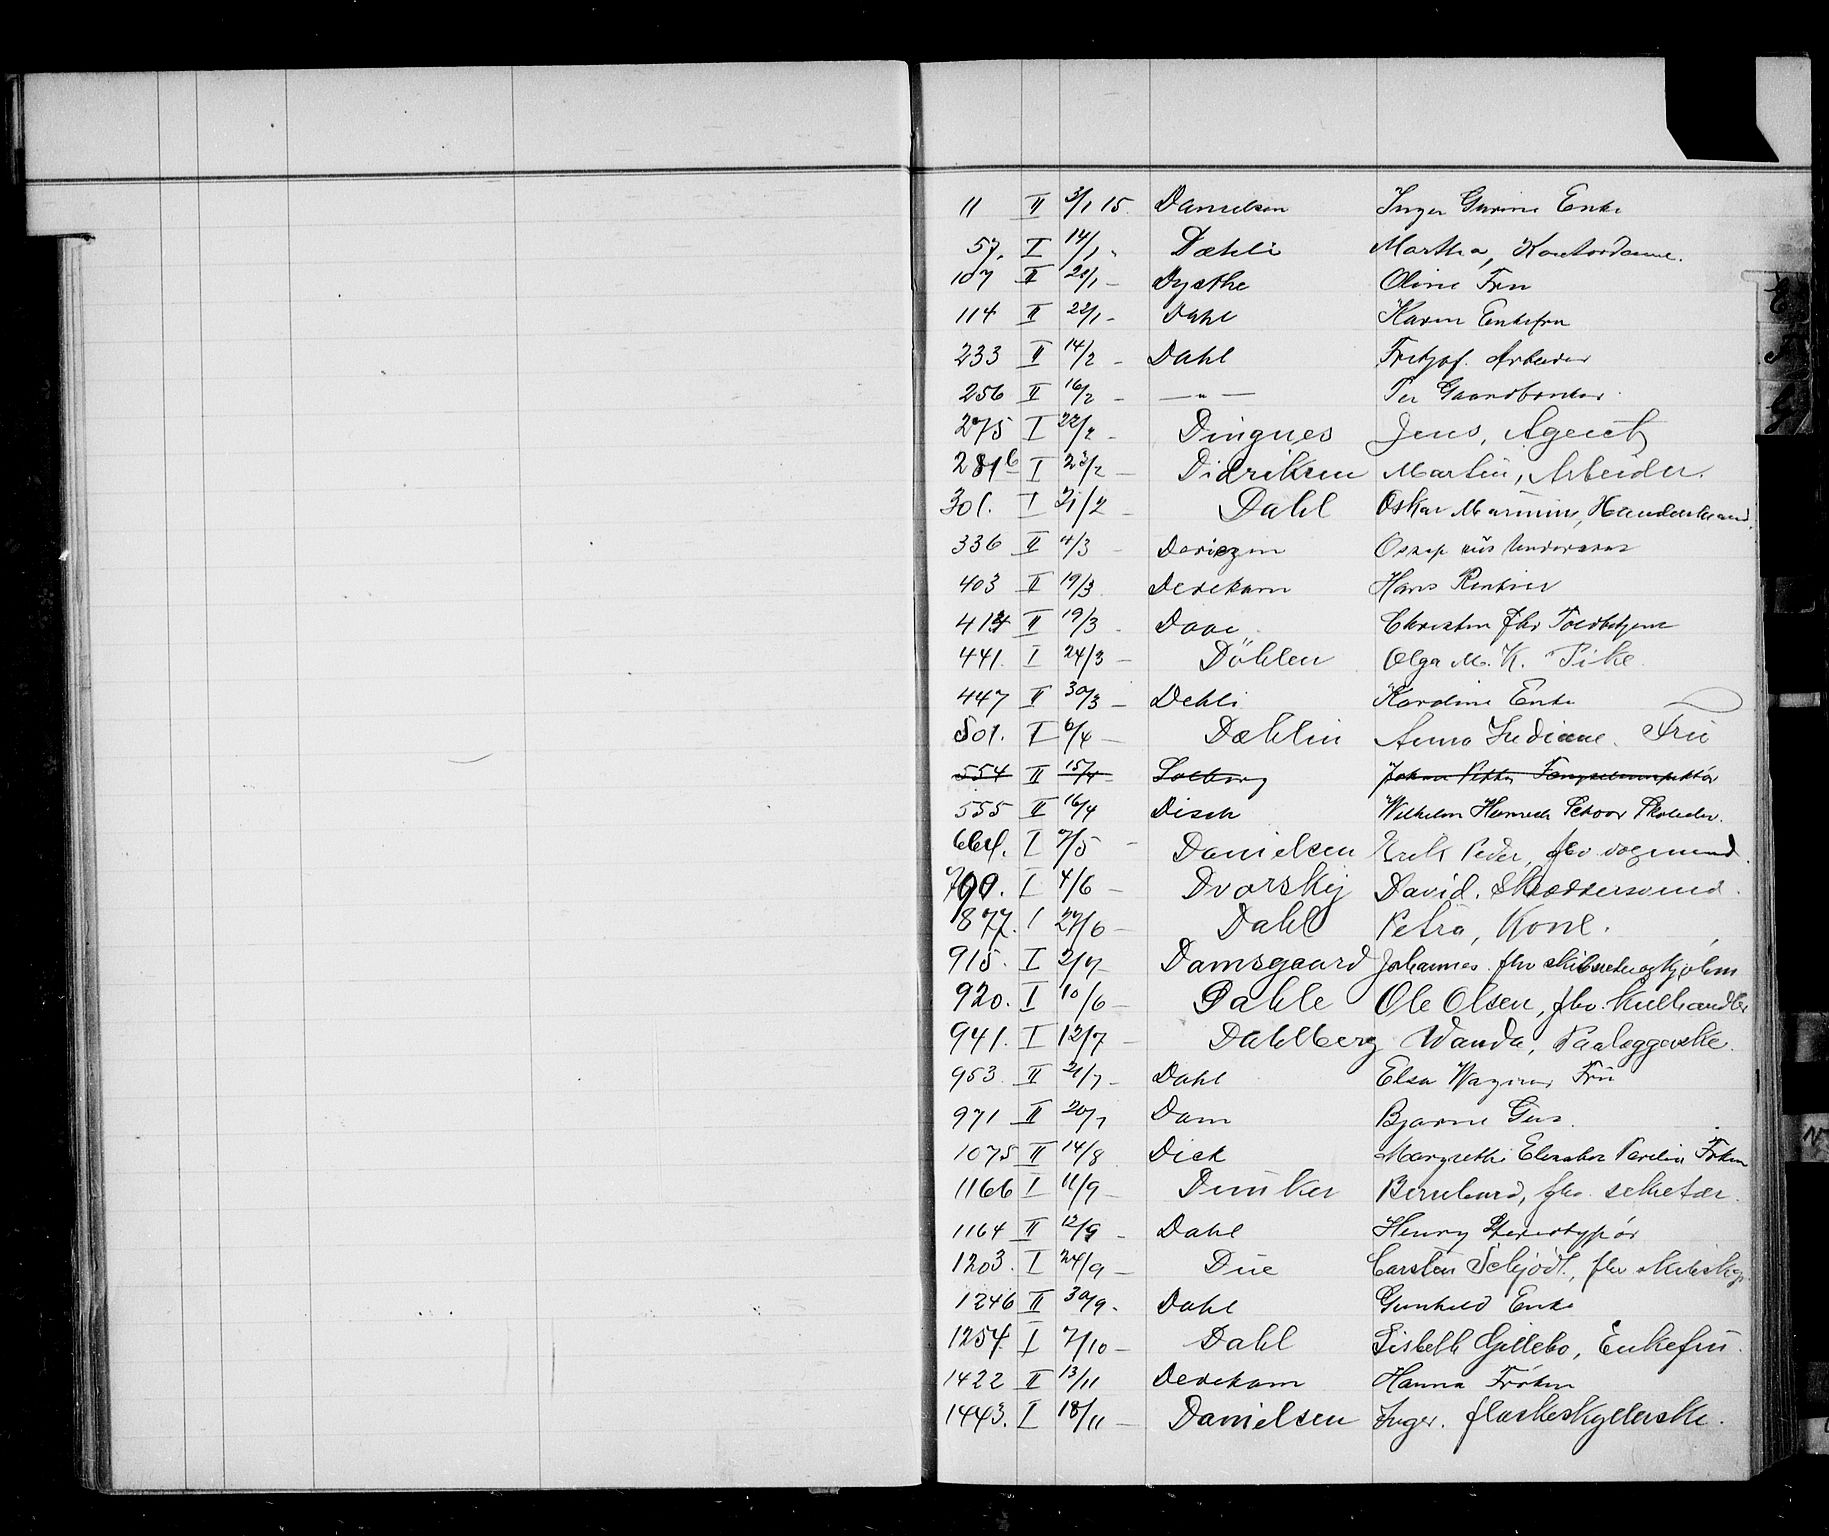 11 II 3/1 15. Danielsen Inger Gurine Enke
57. I 14/1 " Dæhli Martha, Kontordame.
107 II 20/1 - Dysthe Oline Fru
114 II 22/1 - Dahl Karen Enkefru
233 II 14/2 - Dahl Fritjof. Arbeider
256 II 16/2 - —"— Per Gaardbruker
275 I 22/2 - Dingnes Jens, Agent
281b I 23/2 — Didriksen Martin, Arbeider.
301. I /2 — Dahl Oskar Marinius,
336 II 4/3 - Ossip
403 II 19/3 Devekam Hans Rentier
414 II 19/3 - Christen fhv Toldbetjent
441. I 24/3 — Döhlen Olga M. K. Pike.
447 II 30/3 — Dehli Karoline Enke
501. I 6/4 — Dæhlin Anna Indiane. Fru
554 II 15/4 Solberg Johan Petter Fængselsinspektør
555 II 16/4 Disch Wilhelm Skoleder.
664. I 7/5 - Danielsen Erik Peder, fhv vognmand.
790. I 4/6 — Dvorskij David. Skræddersvend.
877. I 27/6 — Dahl Petra, Kone.
915. I 2/7 - Damsgaard Johannes. fhv
920. I 10/6 — Dahle Ole Olsen, fhv. Kulhandler
941. I 12/7 — Dahlberg Wanda, Paalæggerske.
953. II 21/7 - Dahl Elsa Fru
971 II 20/7 Dam Bjarne
1075 II 14/8 Dick Margrethe Frøken
1166 I 11/9 - Dunker Bernhard, fhv. sekretær.
1164 II 12/9 - Dahl Henry Stereotypør
1203. I 24/9 — Due Carsten Schjödt., fhv
1246 II 30/9 - Dahl Gunhild Enke
1254. I 7/10 — Dahl Lisbeth Gillebo, Enkefru.
1422 II 13/11 Devekam Hanna Frøken
1443. I 18/11 — Danielsen Inger. flaskeskyllerske.